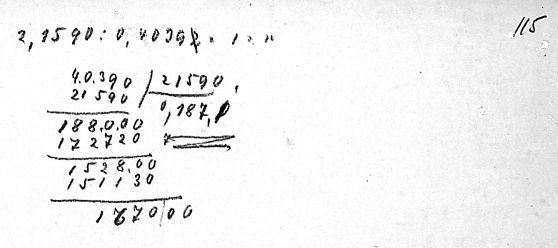 115
2,1590:0,4039
40390 | 21590
21590 0,187
188000
172720
152800
151130
167000